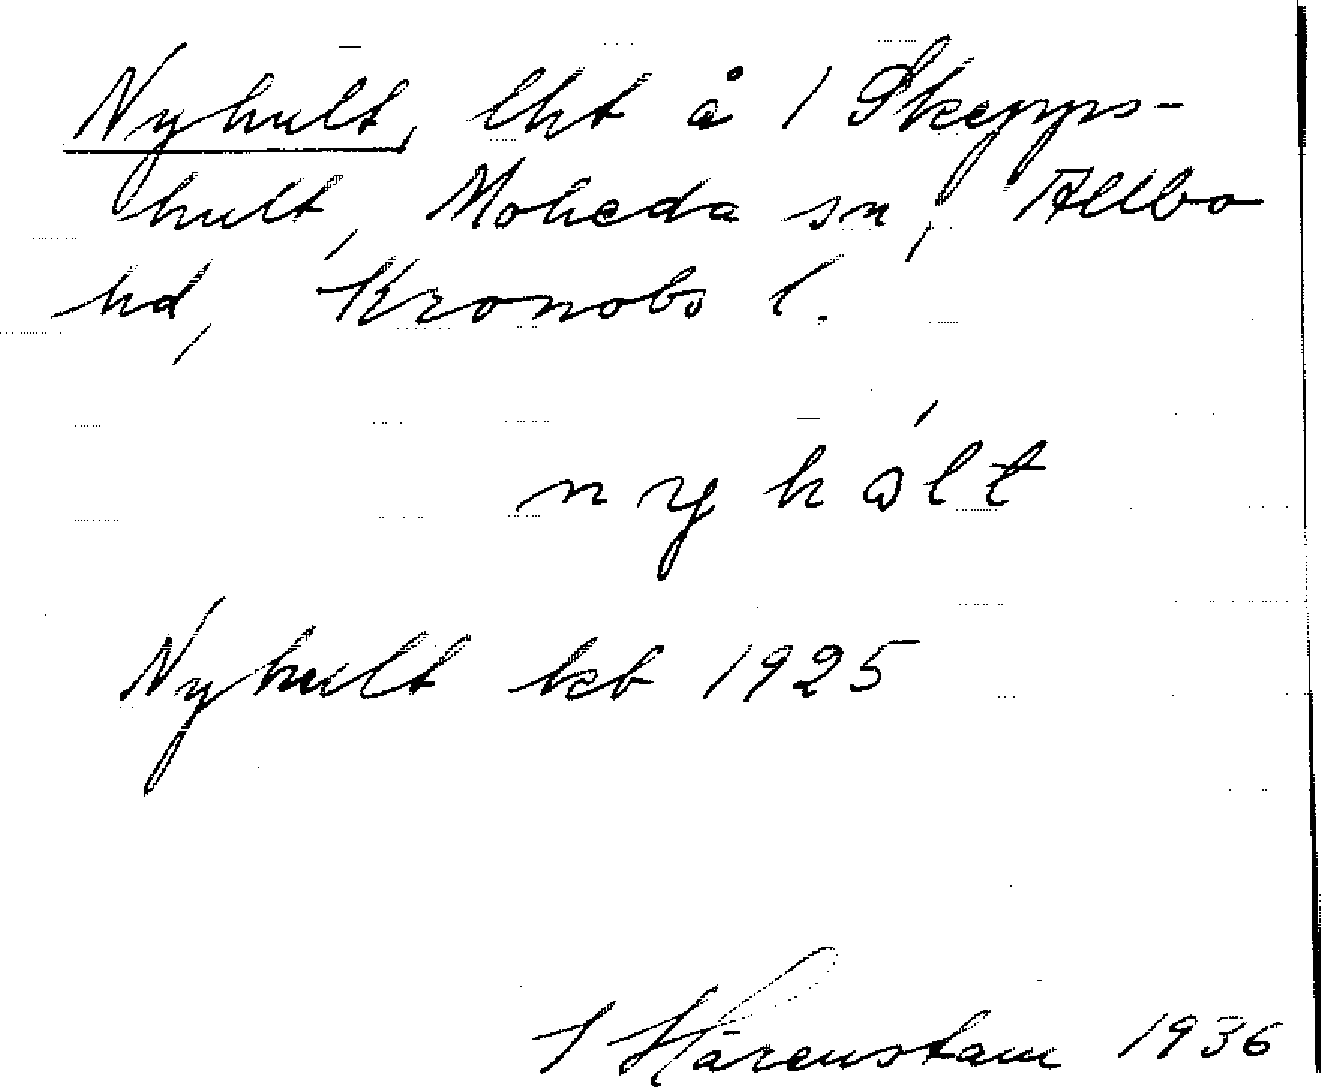 Nyhult, lht å 1 Skepps-
hult, Moheda sn, Allbo
hd, Kronobs l.
nyhólt
Nyhult kb 1925
I Härenstam 1936